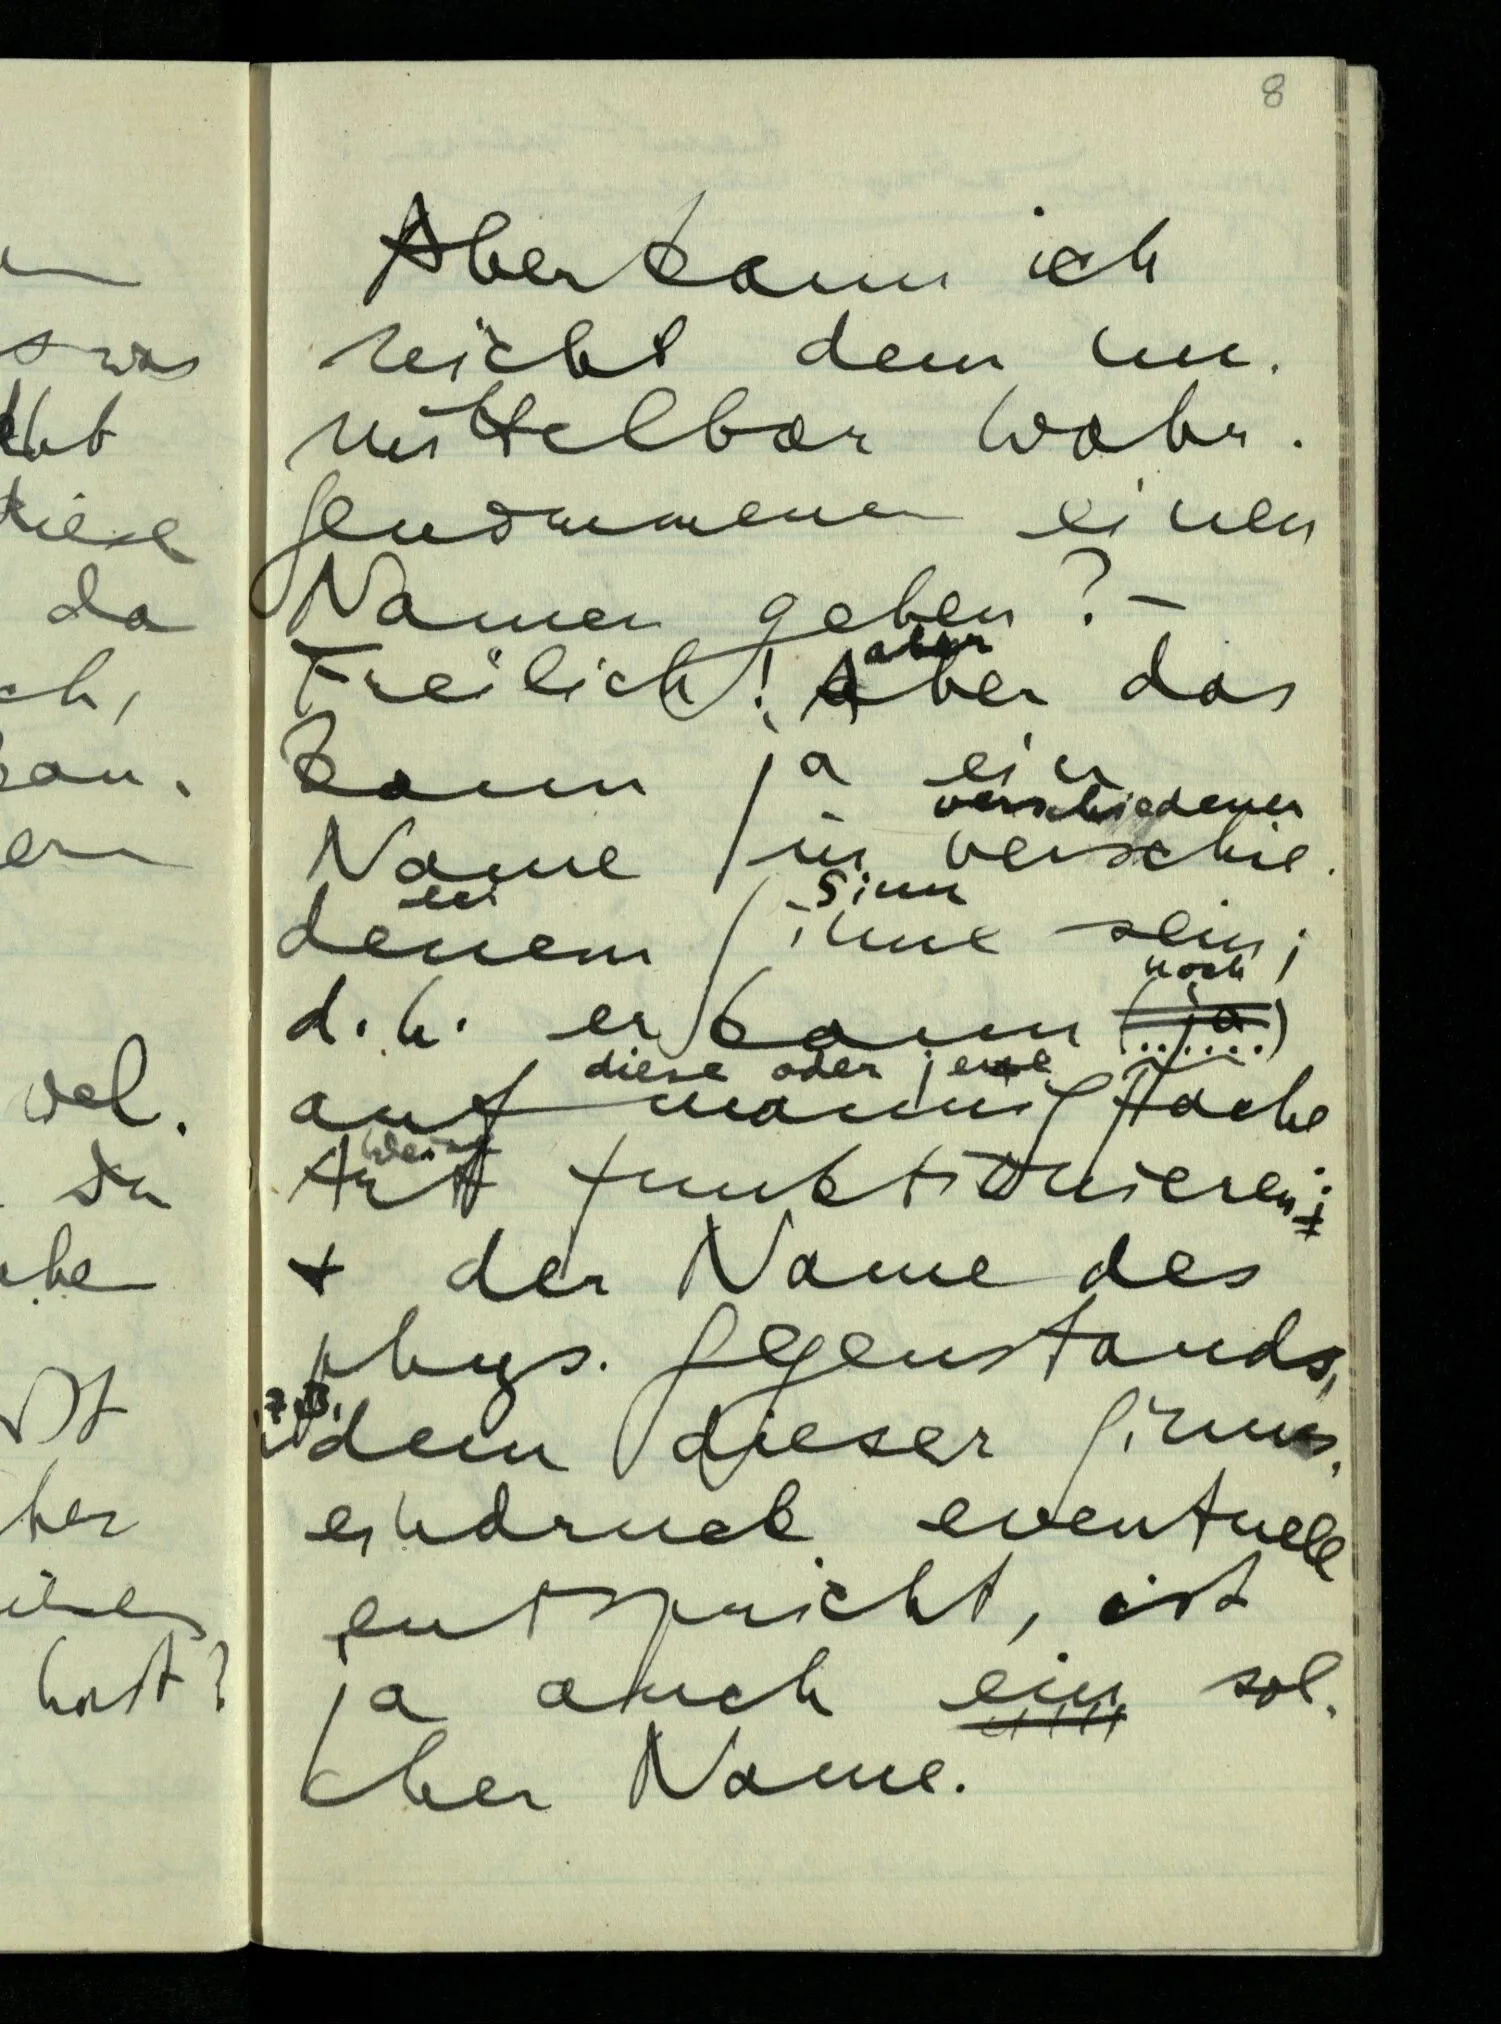 8
Aber kann ich
nicht dem un-
mittelbar Wahr-
genommenen einen
Namen geben? –
aber
Freilich! Aber das
kann ja ein
verschiedenen
Name in verschie-
en Sinn
denem Sinne sein;
noch
d.h. er kann (ja)
diese oder jene
auf mannigfache
Weise
Art funktionieren;
+ der Name des
phys. Gegenstands,
z.B.
dem dieser Sinnes-
eindruck eventuell
entspricht, ist
ja auch ein sol-
cher Name.
s was
diese
da
ch,
ern
wel-
Du
ist
her
hast?